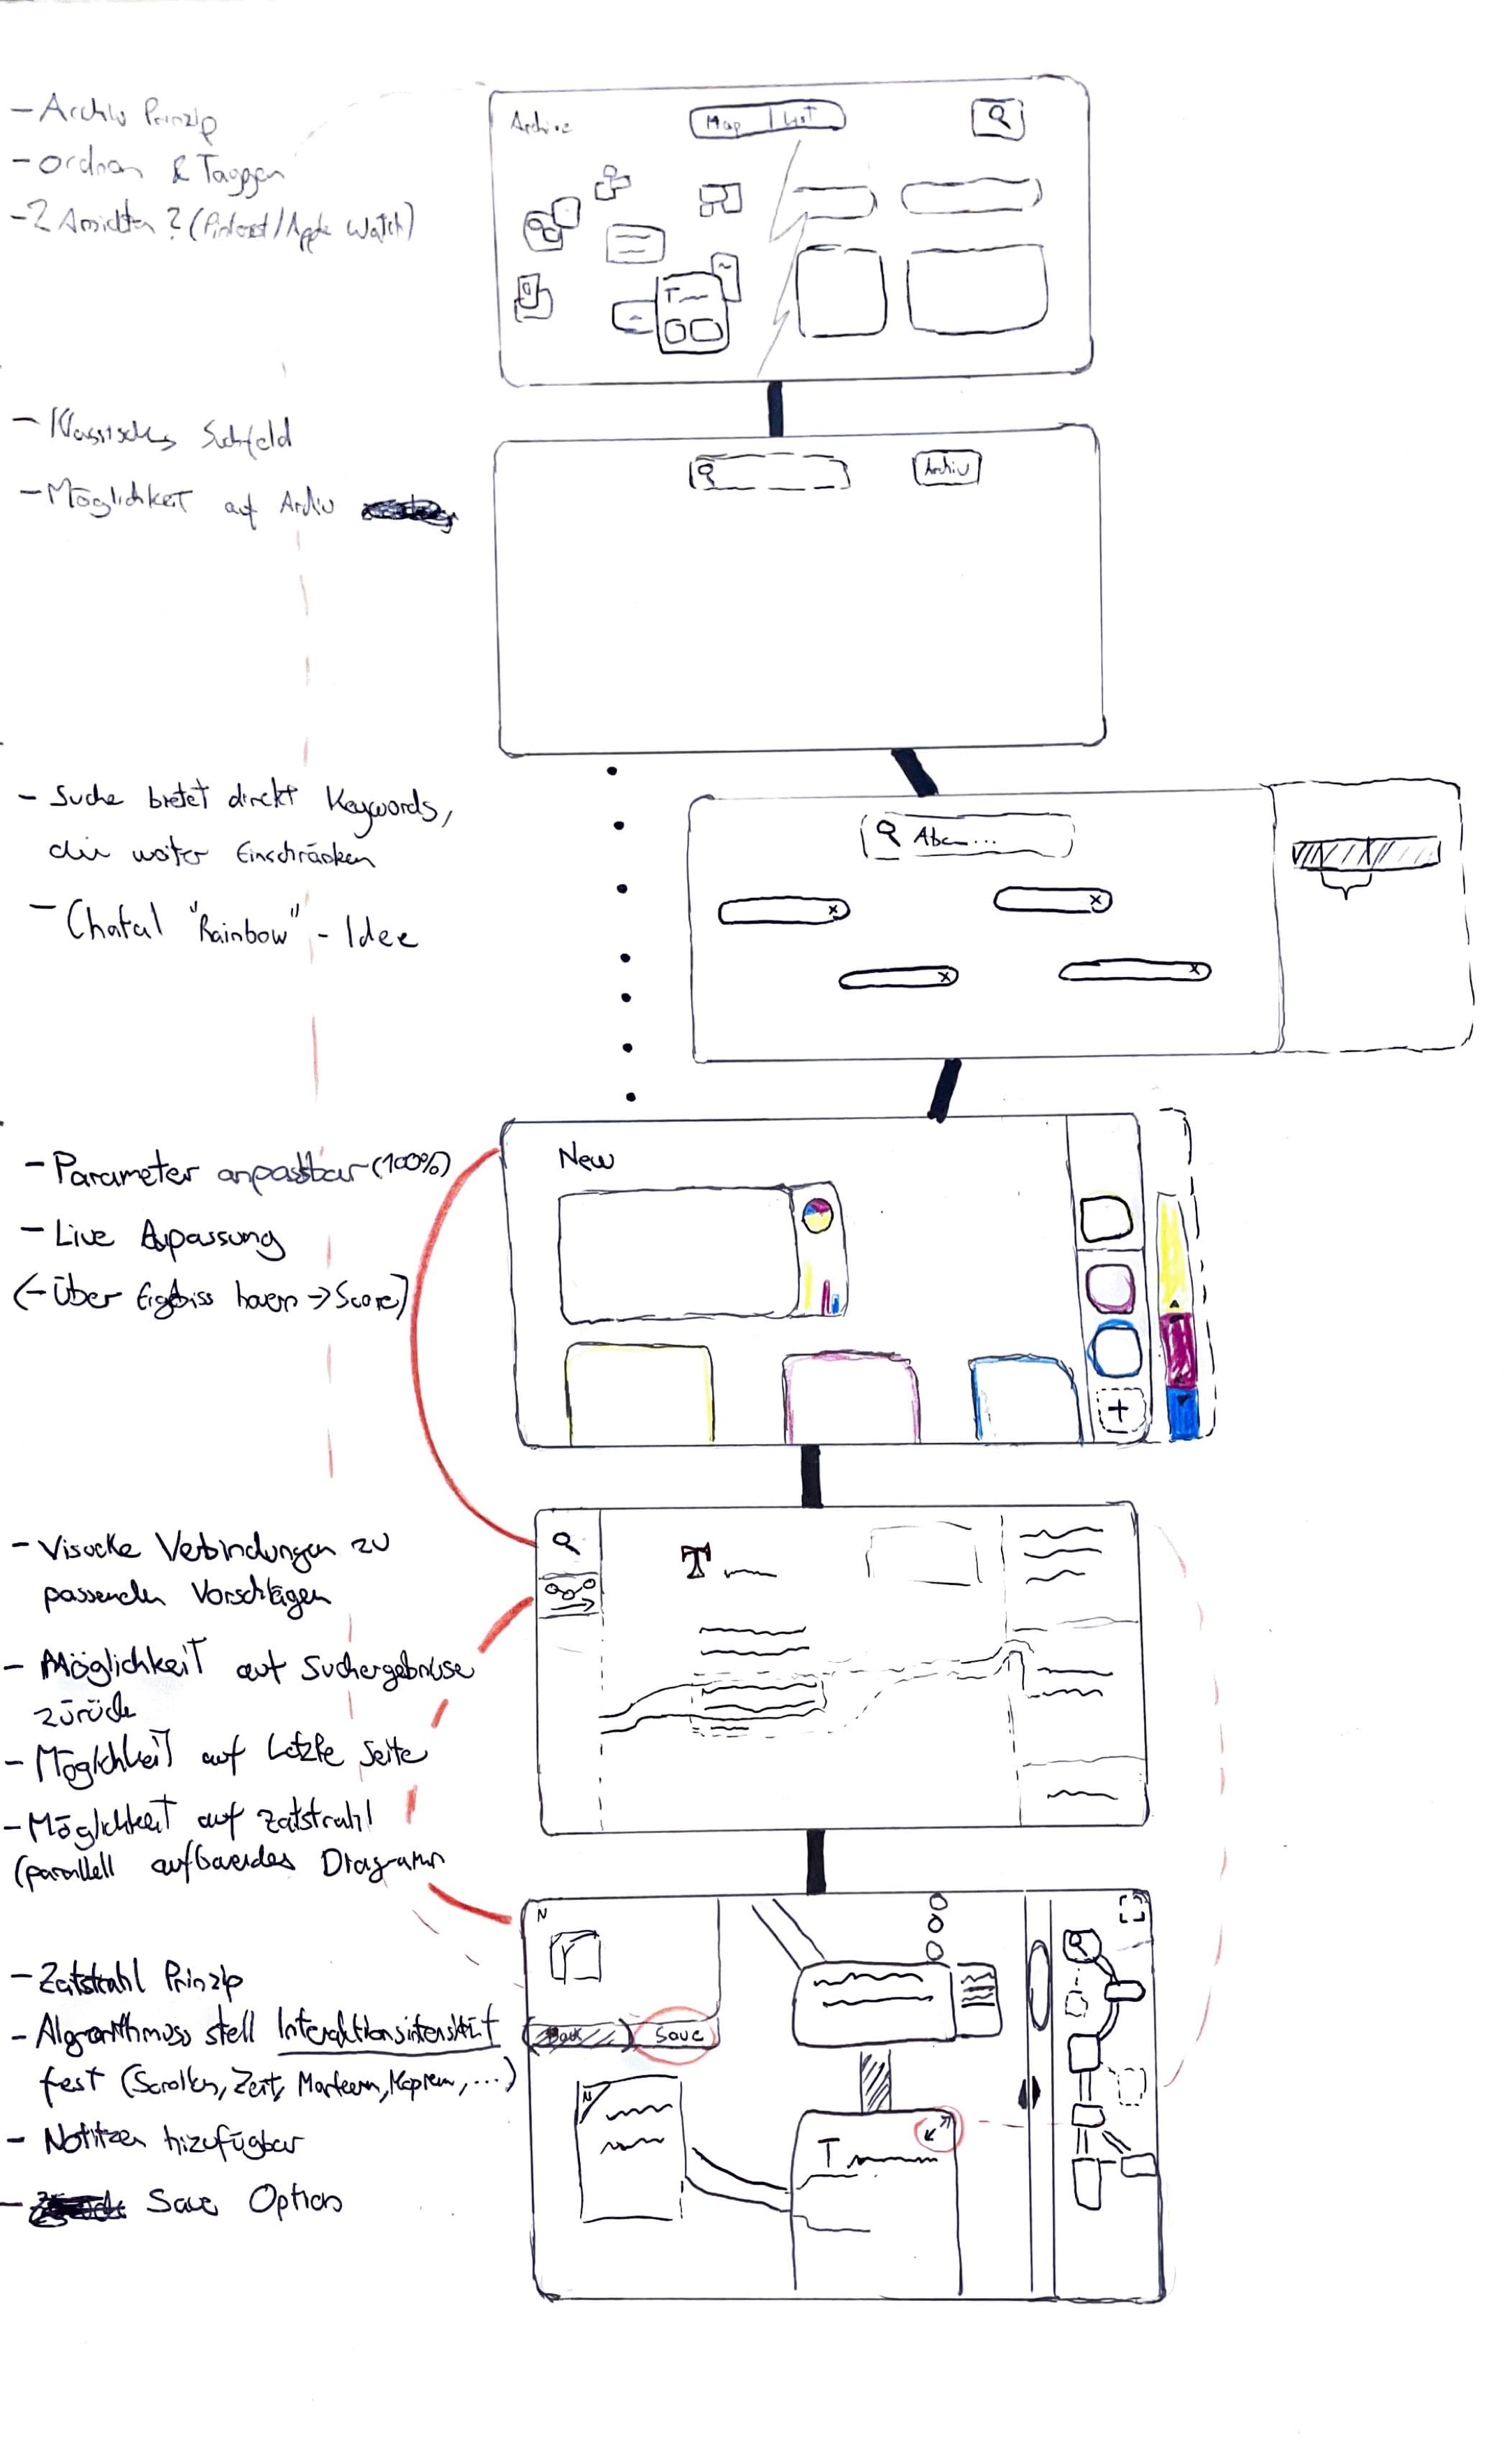 - Archiv Prinzip
- Ordnen & Taggen
- 2 Ansichten? (Pinterest/Apple Watch)
Archive
Map | List
- Klassisches Suchfeld
- Möglichkeit auf Archiv
Archiv
- Suche bietet direkt Keywords,
die weiter Einschränken
- "Rainbow" - Idee
- Parameter anpassbar (100%)
- Live Anpassung
(- Über Ergebiss hovern → Score)
New
+
- Visuelle Verbindungen zu
passenden Vorschlägen
- Möglichkeit auf Suchergebnisse
zurück
- Möglichkeit auf Letzte Seite
- Möglichkeit auf Zeitstrahl
(parallell aufbauendes Diagramm
T
- Zeitstrahl Prinzip
- Algorithmuss stell Interaktionsintensität
fest (Scrollen, Zeit, Markieren, Kopieren, ...)
- Notitzen hizufügbar
- Save Option
N
Save
N
T